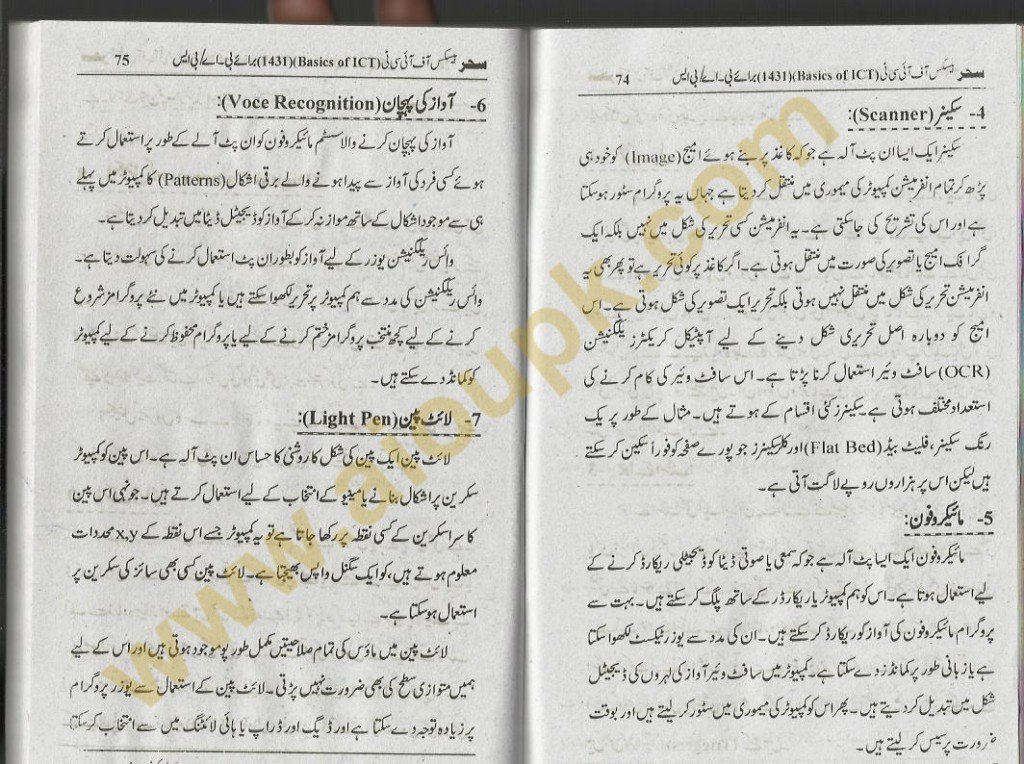 سحر بیسکس آف آئی سی ٹی (Basics of ICT)(1431) برائے بی۔اے/بی ایس 74
4- سکینر (Scanner):
سکینر ایک ایسا ان پٹ آلہ ہے جو کہ کاغذ پر بنے ہوئے امیج (Image) کو خود ہی
پڑھ کر تمام انفرمیشن کمپیوٹر کی میموری میں منتقل کر دیتا ہے جہاں یہ پروگرام سٹور ہو سکتا
ہے اور اس کی تشریح کی جا سکتی ہے۔ یہ انفرمیشن کسی تحریر کی شکل میں نہیں بلکہ ایک
گرافک امیج یا تصویر کی صورت میں منتقل ہوتی ہے۔ اگر کاغذ پر کوئی تحریر ہے تو پھر بھی یہ
انفرمیشن تحریر کی شکل میں منتقل نہیں ہوتی بلکہ تحریر ایک تصویر کی شکل ہوتی ہے۔ اس
امیج کو دوبارہ اصل تحریری شکل دینے کے لیے آپٹیکل کریکٹرز ریلگنیشن
(OCR) سافٹ وئیر استعمال کرنا پڑتا ہے۔ اس سافٹ وئیر کی کام کرنے کی
استعداد مختلف ہوتی ہے۔ سکینرز کئی اقسام کے ہوتے ہیں۔ مثال کے طور پر یک
رنگ سکینر، فلیٹ بیڈ (Flat Bed) اور کلر سکینرز جو پورے صفحہ کو فوراً سکین کر سکتے
ہیں لیکن اس پر ہزاروں روپے لاگت آتی ہے۔
5- مائیکروفون:
مائیکروفون ایک ایسا پٹ آلہ ہے جو کہ سمعی یا صوتی ڈیٹا کو ڈیجیٹلی ریکارڈ کرنے کے
لیے استعمال ہوتا ہے۔ اس کو ہم کمپیوٹر یا ریکارڈر کے ساتھ پلگ کر سکتے ہیں۔ بہت سے
پروگرام مائیکروفون کی آواز کو ریکارڈ کر سکتے ہیں۔ ان کی مدد سے یوزر ٹیکسٹ لکھوا سکتا
ہے یا زبانی طور پر کمانڈز دے سکتا ہے۔ کمپیوٹر میں سافٹ وئیر آواز کی لہروں کی ڈیجیٹل
شکل میں تبدیل کر دیتے ہیں۔ پھر اس کو کمپیوٹر کی میموری میں سٹور کر لیتے ہیں اور بوقت
ضرورت پرسیس کر لیتے ہیں۔
سحر بیسکس آف آئی سی ٹی (Basics of ICT)(1431) برائے بی۔اے/بی ایس 75
6- آواز کی پہچان (Voce Recognition):
آواز کی پہچان کرنے والا سسٹم مائیکروفون کو ان پٹ آلے کے طور پر استعمال کرتے
ہوئے کسی فرد کی آواز سے پیدا ہونے والے برقی اشکال (Patterns) کا کمپیوٹر میں پہلے
ہی سے موجود اشکال کے ساتھ موازنہ کر کے آواز کو ڈیجیٹل ڈیٹا میں تبدیل کر دیتا ہے۔
وائس ریلگنیشن یوزر کے لیے آواز کو بطور ان پٹ استعمال کرنے کی سہولت دیتا ہے۔
وائس ریلگنیشن کی مدد سے ہم کمپیوٹر پر تحریر لکھوا سکتے ہیں یا کمپیوٹر میں نئے پروگرامز شروع
کرنے کے لیے کچھ منتخب پروگرامز ختم کرنے کے لیے یا پروگرام محفوظ کرنے کے لیے کمپیوٹر
کو کمانڈ دے سکتے ہیں۔
7- لائٹ پین (Light Pen):
لائٹ پین ایک پین کی شکل کا روشنی کا حساس ان پٹ آلہ ہے۔ اس پین کو کمپیوٹر
سکرین پر اشکال بنانے یا مینیو کے انتخاب کے لیے استعمال کرتے ہیں۔ جونہی اس پین
کا سرا سکرین کے کسی نقطہ پر رکھا جاتا ہے تو یہ کمپیوٹر جسے اس نقطہ کے x,y محددات
معلوم ہوتے ہیں، کو ایک سگنل واپس بھیجتا ہے۔ لائٹ پین کسی بھی سائز کی سکرین پر
استعمال ہو سکتا ہے۔
لائٹ پین میں ماؤس کی تمام صلاحیتیں مکمل طور پو موجود ہوتی ہیں اور اس کے لیے
ہمیں متوازی سطح کی بھی ضرورت نہیں پڑتی۔ لائٹ پین کے استعمال سے یوزر پروگرام
پر زیادہ توجہ دے سکتا ہے اور ڈیگ اور ڈراپ یا ہائی لائٹنگ میں سے انتخاب کر سکتا
www.aioupk.com